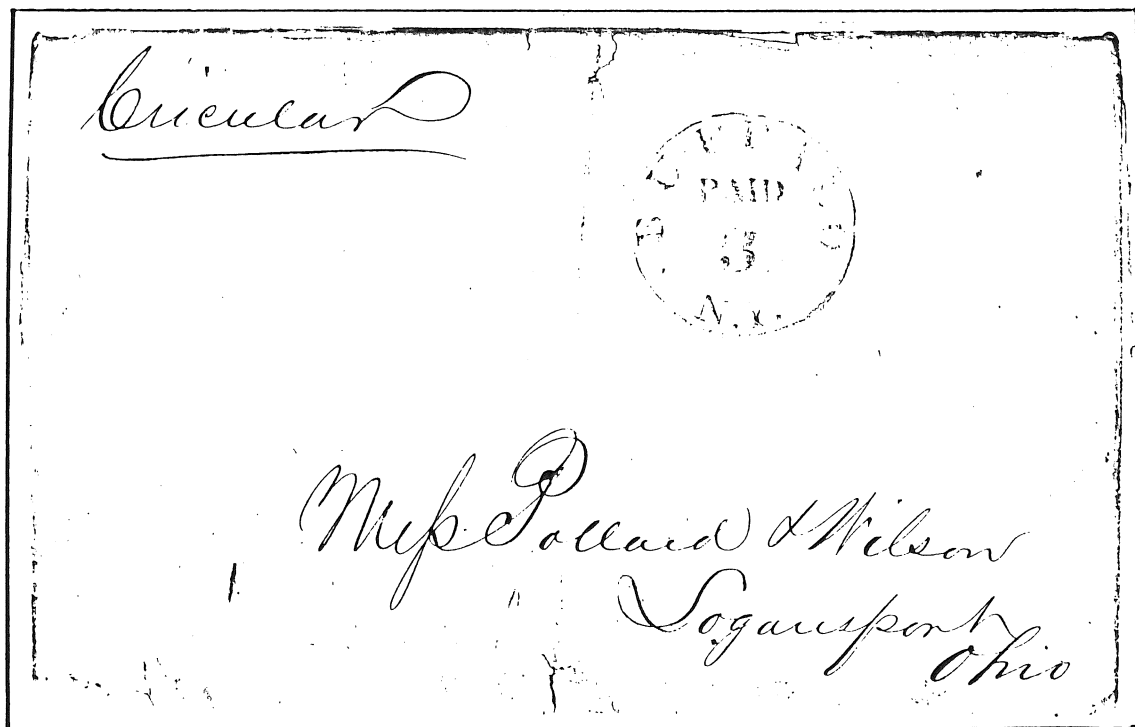 Circular
PAID
3
N.Y.
Mess Pollard & Wilson
Logansport
Ohio